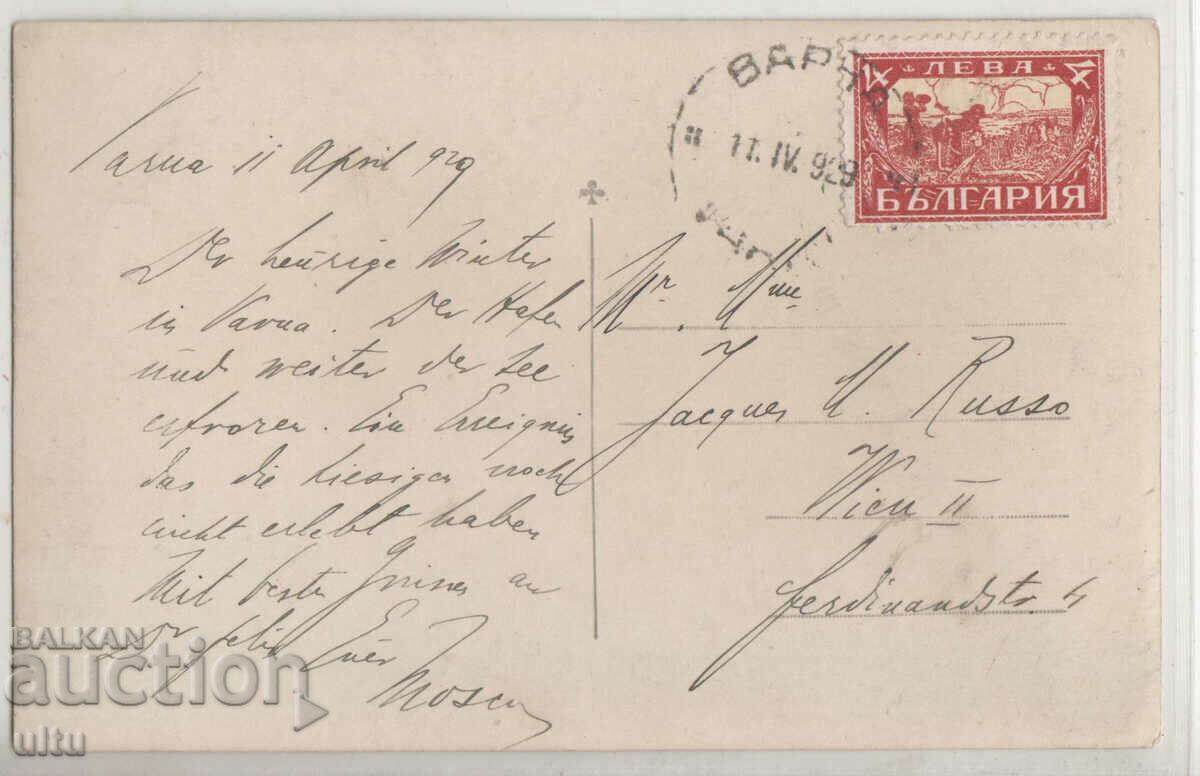 Varna 11 April 929
Der heurige Winter
in Varna. Der Hafen
und weiter der See
erfroren. Ein Ereignis
das die hiesigen noch
nicht erlebt haben
Mit besten Grüssen an
Dr. Felix Euer
ВАРНА
11.IV.929
4 ЛЕВА 4
БЪЛГАРИЯ
Mr. Mme
Jacques M. Russo
Wien II
Ferdinandstr. 4
BALKAN
auction
ultu